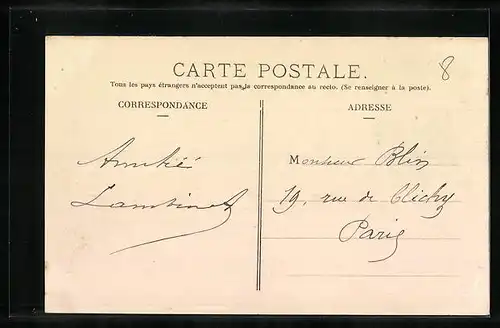 CARTE POSTALE.
8
Tous les pays étrangers n'acceptent pas la correspondance au recto. (Se renseigner à la poste).
CORRESPONDANCE
ADRESSE
Amitié
Lambinet
Monsieur Blin
19, rue de Clichy
Paris